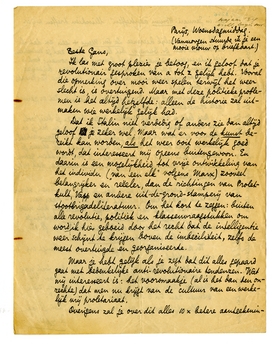 Parijs, Woensdagmiddag.
(Vanmorgen stuurde ik je een
mooie vrouw op briefkaart)
Beste Gans,
Ik las met groot plezier je betoog, en ik geloof dat je
revolutionair gesproken van a tot z gelijk hebt. Vooral
die opmerking over moei weer spelen terwijl het
slecht is, is overtuigend. Maar met deze politieke proble-
men is het altijd hetzelfde: alleen de historie zal uit-
maken wie werkelijk gelijk heeft.
Dat ik Stalin niet verdedig of anderszins ban altijd
geloof je zeker wel. Maar wat er voor de kunst be-
reikt kan worden, als het weer ooit werkelijk goed
wordt, dat interesseert mij opeens buitengewoon. En
daarin is een mogelijkheid tot vrije ontwikkeling van
het individu (van een "elk" volgens Marx) zooveel
belangrijker en reëeler, dan de richtingen van Prolet-
kult, Vapp en andere uit-de-grond-stampen van
stootbrigadeliteratuur. Om het kort te zeggen: buiten
alle revolutie, politiek en klassenvraagstukken om
wordt ik hier geboeid door het recht dat de intelligentie
weer schijnt te krijgen, boven de imbeciliteit, zelfs de
meest overtuigde en georganiseerde.
Maar je hebt gelijk als je zegt dat dit alles gepaard
gaat met bedenkelijke anti-revolutionaire tendenzen. Wat
mij interesseert is: het voorsmaakje (al is het dan on-
recht) dat men nu krijgt van de cultuur van een werke-
lijk vrij proletariaat.
Overigens zal je over dit alles 10 x betere aanteekenin-